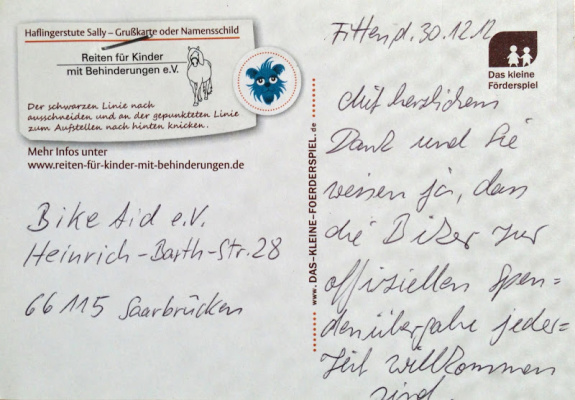 Haflingerstute Sally – Grußkarte oder Namensschild
Reiten für Kinder
mit Behinderungen e.V.
Der schwarzen Linie nach
ausschneiden und an der gepunkteten Linie
zum Aufstellen nach hinten knicken.
Mehr Infos unter
www.reiten-für-kinder-mit-behinderungen.de
Bike Aid e.V.
Heinrich-Barth-Str. 28
66115 Saarbrücken
www.DAS-KLEINE-FOERDERSPIEL.de
Fitten, d. 30.12.12
Das kleine
Förderspiel
Mit herzlichem
Dank und Sie
wissen ja, dass
die Biker zur
offiziellen Spen=
denübergabe jeder=
zeit willkommen
sind.